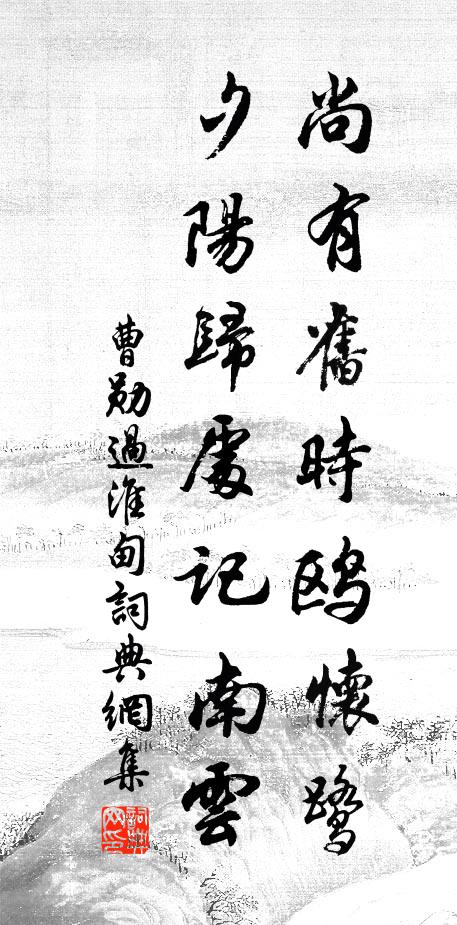 尚有舊時鷗懷鷺
夕陽歸處記南雲
曹勛過淮甸詞典網集